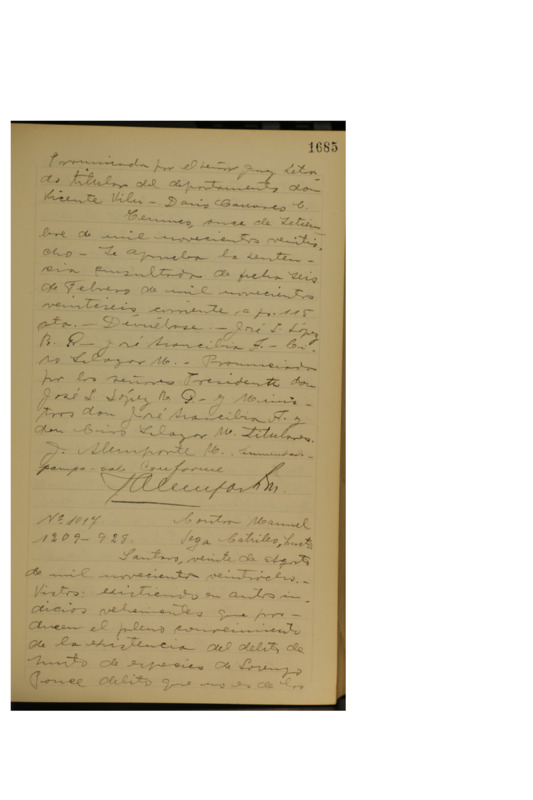 1685
Pronunciada por el señor Juez Letra-
do titular del departamento don
Vicente Vilu - Darío Cánovas C.
Temuco, once de Setiem-
bre de mil novecientos veintio-
cho - Se aprueba la senten-
cia consultada de fecha seis
de Febrero de mil novecientos
veintiseis, corriente a fs. 115
vta. - Devuélvase. - José L. López
R. G - José Arancibia F. - Ci-
ro Salazar M. - Pronunciada
por los señores Presidente don
José L. López R. G - y Minis-
tros don José Arancibia F. y
don Ciro Salazar M. Titulares.
J. Alemparte M. enmendado -
vale Conforme
JAlemparte M.
Nº 1017 Contra Manuel
1209 - 928. Catrileo, hurto
Santos, veinte de Agosto
de mil novecientos veintiocho. -
Vistos: existiendo en autos in-
dicios vehementes que pro-
ducen el pleno convencimiento
de la existencia del delito de
hurto de especies de Lorenzo
Ponce delito que no es de los